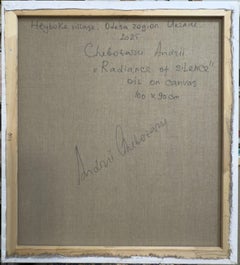 village, Odesa region Ukraine
2025
Chebotaru Andrii
"Radiance of silence"
oil on canvas
100 x 90 cm
Andrii Chebotaru